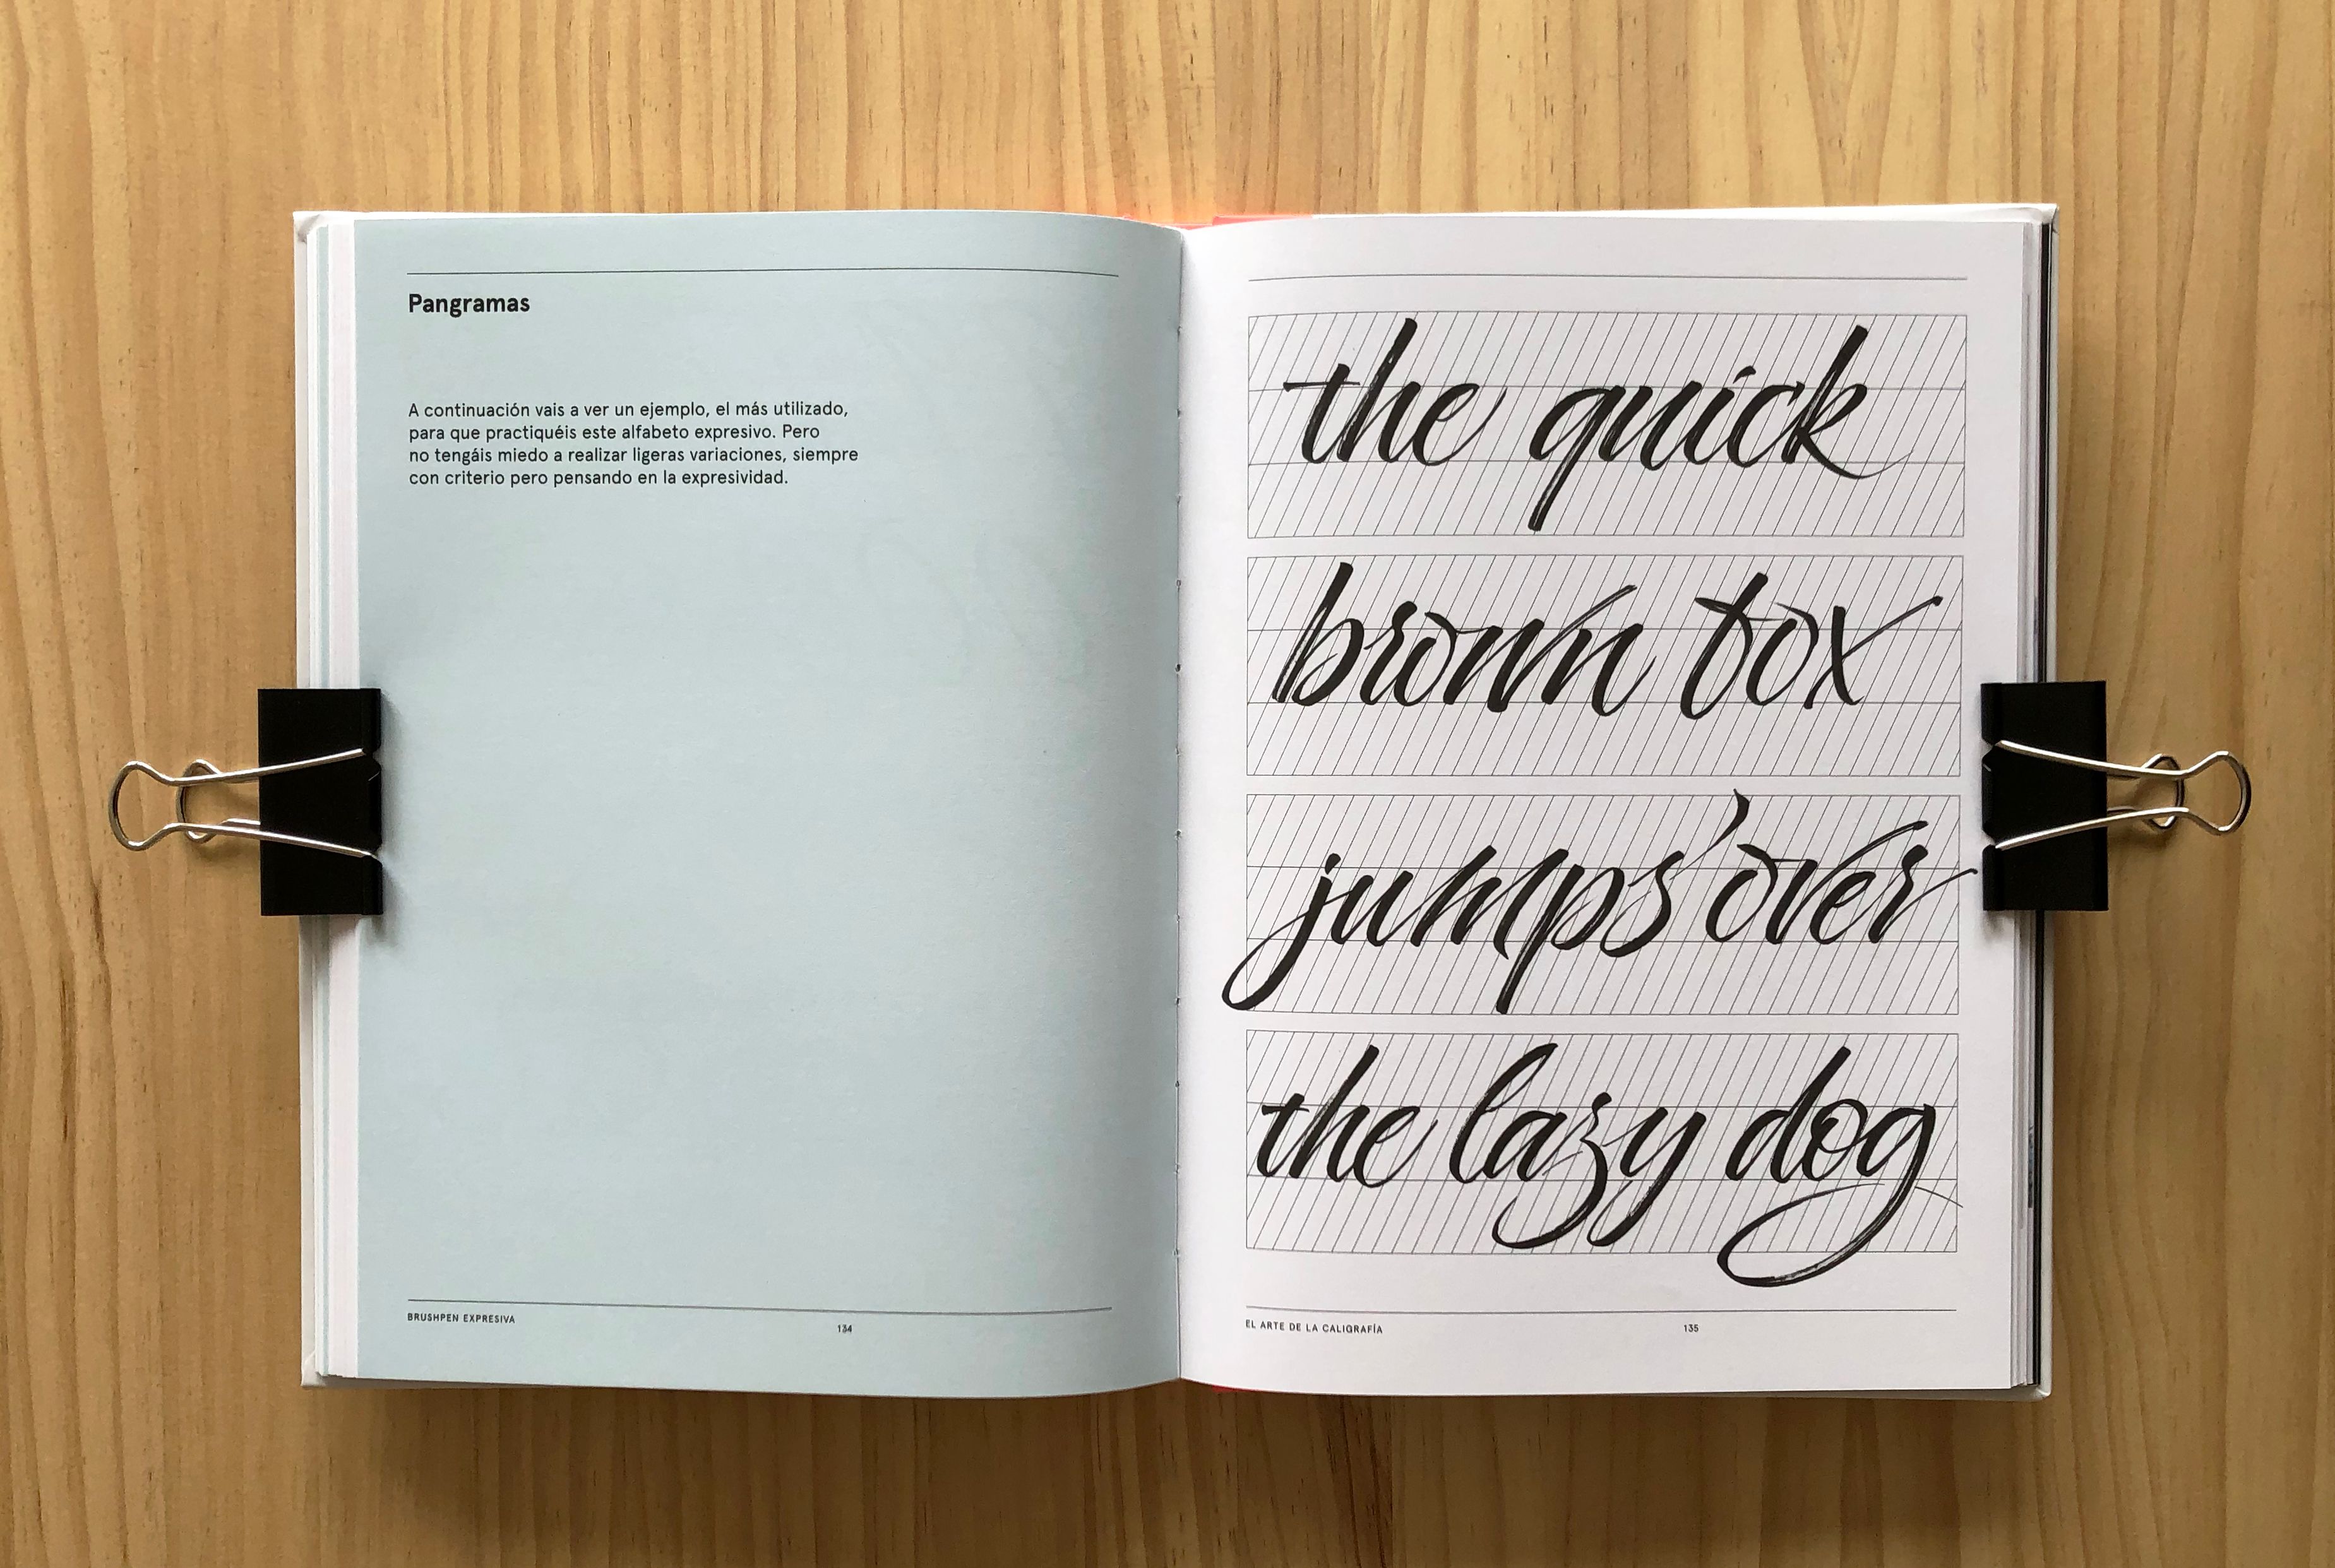 Pangramas
A continuación vais a ver un ejemplo, el más utilizado,
para que practiquéis este alfabeto expresivo. Pero
no tengáis miedo a realizar ligeras variaciones, siempre
con criterio pero pensando en la expresividad.
BRUSHPEN EXPRESIVA
134
the quick
brown fox
jumps over
the lazy dog
EL ARTE DE LA CALIGRAFÍA
135